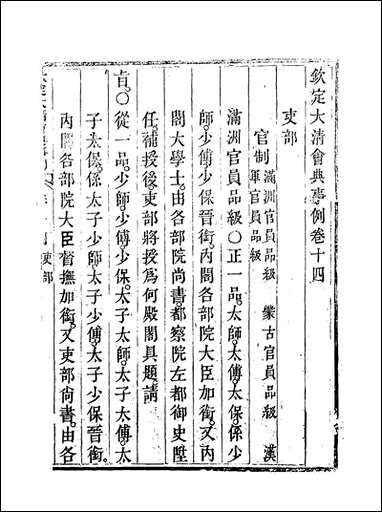 欽定大清會典事例卷十四
吏部
官制 滿洲官員品級 蒙古官員品級 漢
軍官員品級
滿洲官員品級〇正一品太師太傅太保係少
師少傅少保晉銜內閣各部院大臣加銜又內
閣大學士由各部院尚書都察院左都御史陞
任補授後吏部將授爲何殿閣具題請
旨〇從一品少師少傅少保太子太師太子太傅太
子太保係太子少師太子少傅太子少保晉銜
內閣各部院大臣督撫加銜又吏部尚書由各
吏部